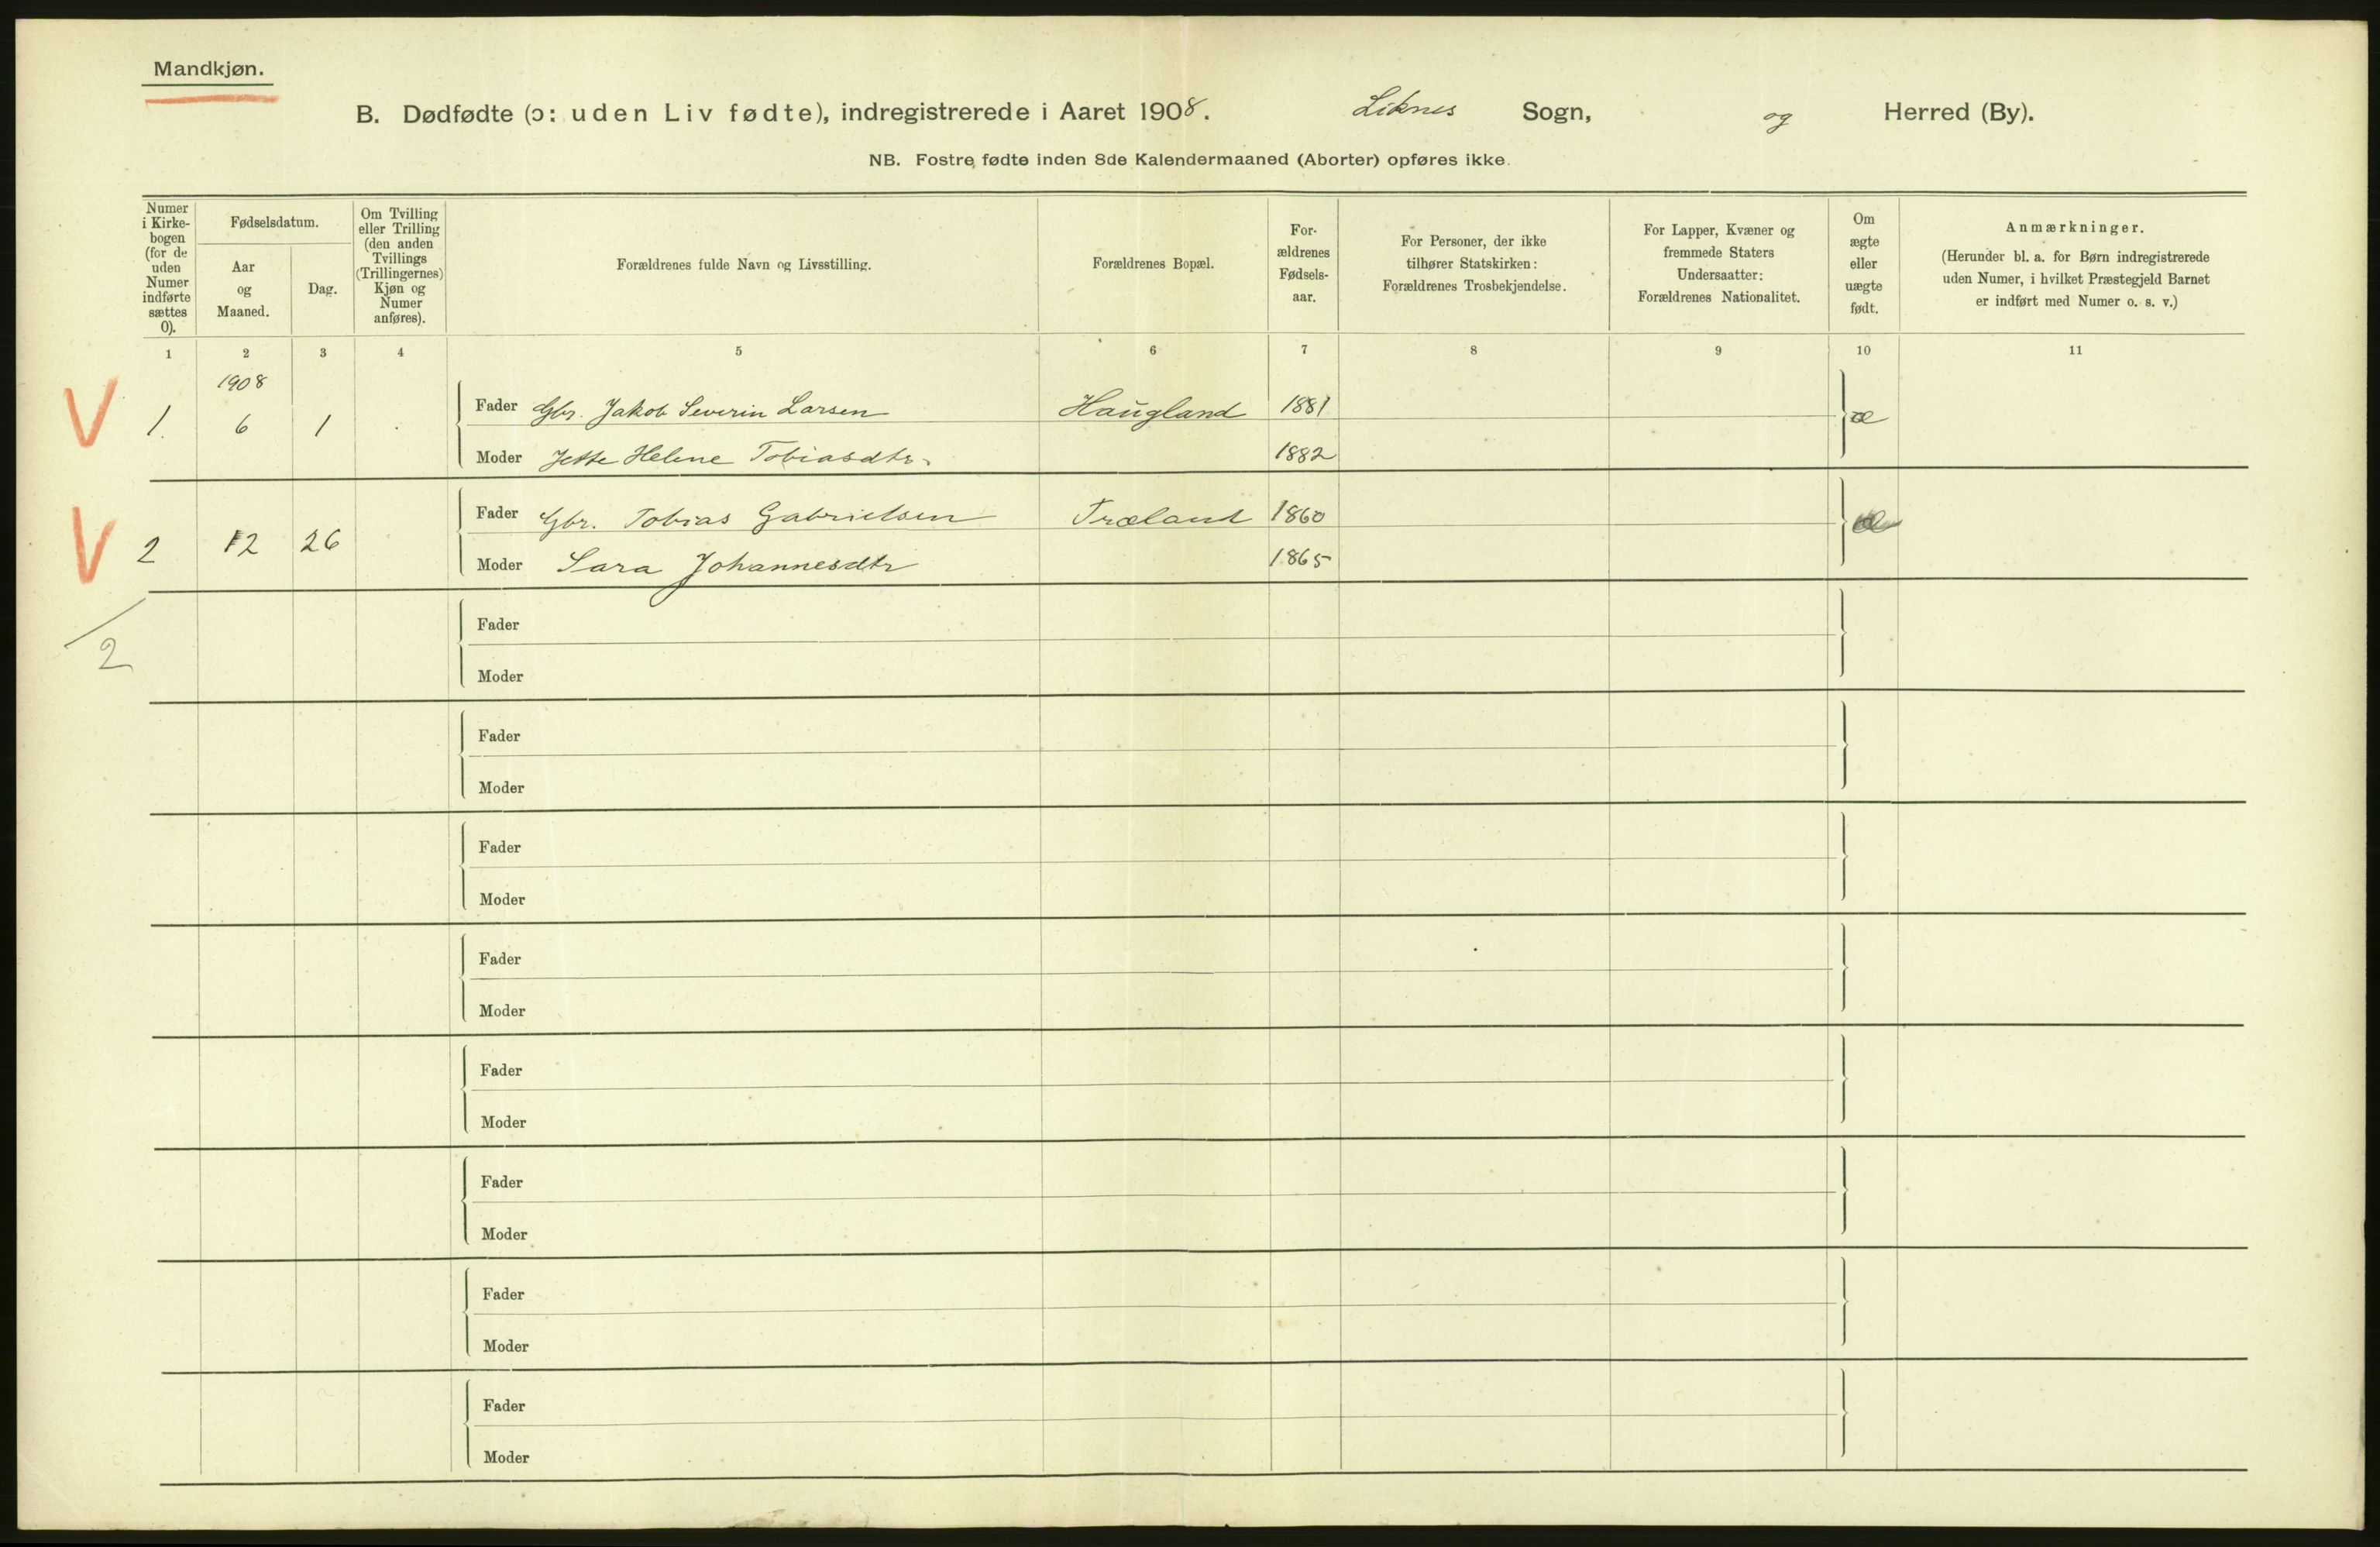 Mandkjøn.
B. Dødfødte (ɔ: uden Liv fødte), indregistrerede i Aaret 1908. Liknes Sogn, og Herred (By).
NB. Fostre fødte inden 8de Kalendermaaned (Aborter) opføres ikke.
Numer
i Kirke-
bogen
(for de
uden
Numer
indførte
sættes
0).
Fødselsdatum.
Aar
og
Maaned.
Dag.
Om Tvilling
eller Trilling
(den anden
Tvillings
(Trillingernes)
Kjøn og
Numer
anføres).
Forældrenes fulde Navn og Livsstilling.
Forældrenes Bopæl.
For-
ældrenes
Fødsels-
aar.
For Personer, der ikke
tilhører Statskirken:
Forældrenes Trosbekjendelse.
For Lapper, Kvæner og
fremmede Staters
Undersaatter:
Forældrenes Nationalitet.
Om
ægte
eller
uægte
født.
Anmærkninger.
(Herunder bl. a. for Børn indregistrerede
uden Numer, i hvilket Præstegjeld Barnet
er indført med Numer o. s. v.)
1 2 3 4 5 6 7 8 9 10 11
1908
V 1. 6 1 Fader Gbr. Jakob Severin Larsen Haugland 1881 æ
Moder Jette Helene Tobiasdtr. 1882
V 2 12 26 Fader Gbr. Tobias Gabrielsen Træland 1860 æ
Moder Sara Johannesdtr 1865
2
Fader
Moder
Fader
Moder
Fader
Moder
Fader
Moder
Fader
Moder
Fader
Moder
Fader
Moder
Fader
Moder